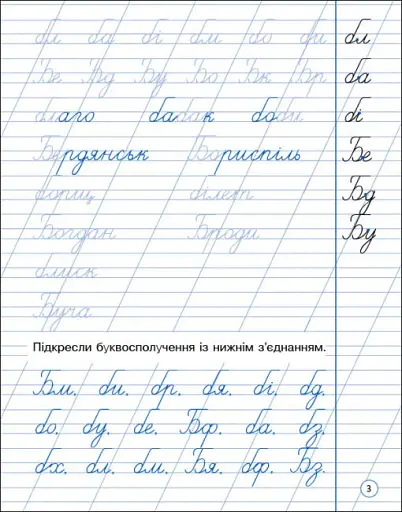 бл ба бі бм бо би бл
Бе Бд Бу Бо Бк Бр ба
благо бабак боби бі
Бердянськ Бориспіль Бе
борщ білет Бд
Богдан Броди Бу
блиск
Буча
Підкресли буквосполучення із нижнім з'єднанням.
Бм. би. бр. бя. бі. бд.
бо. бу. бе. Бф. ба. бз.
бх. бл. бм. Бя. бф. Бз.
3